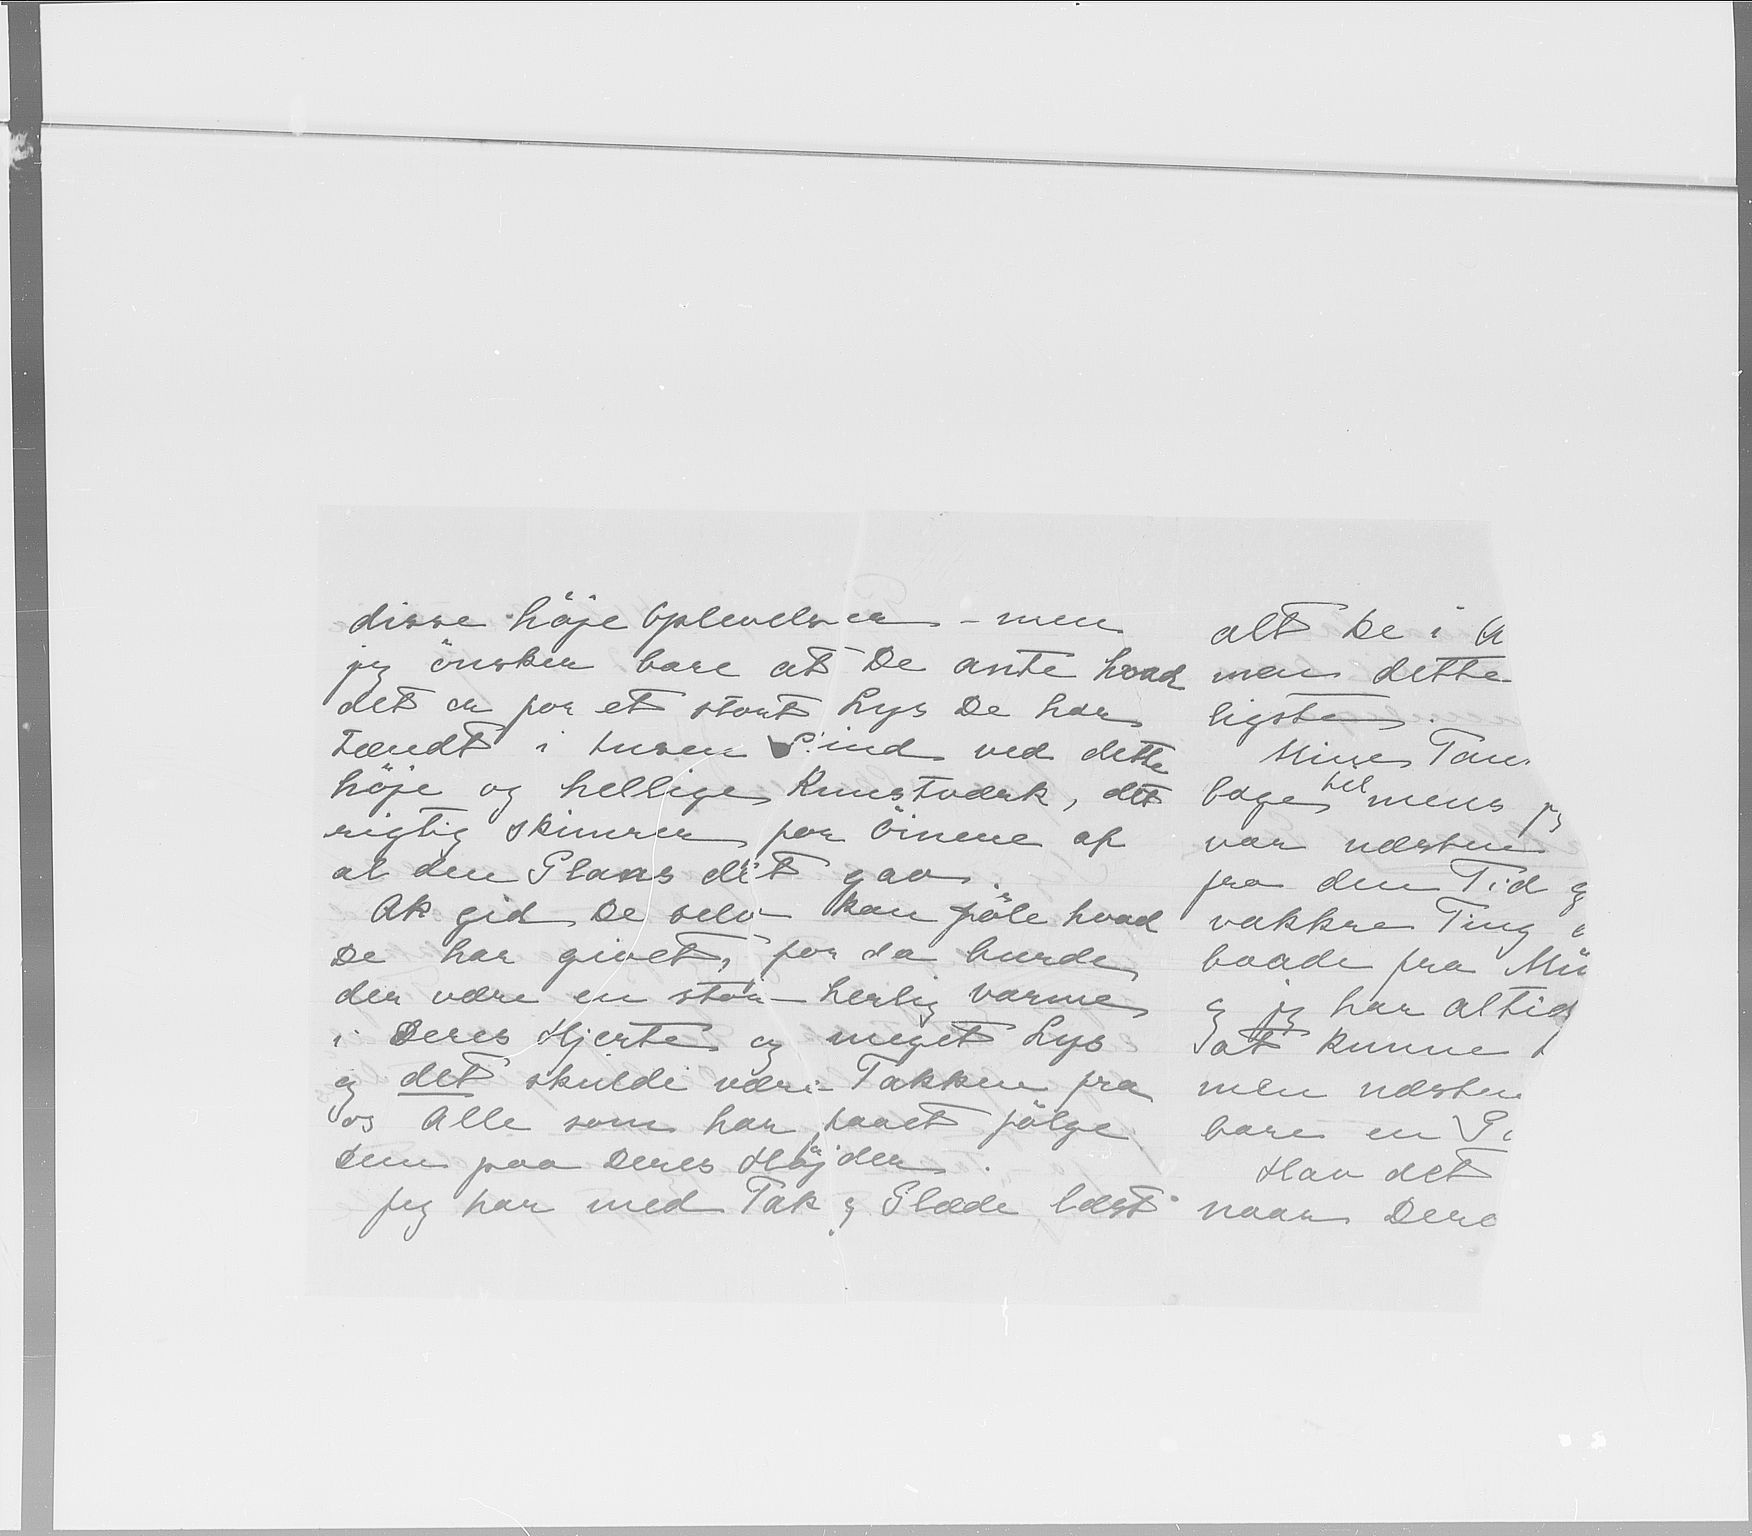 disse höje Oplevelser – men
jeg önsker bare at De ante hvad
det er for et stort Lys De har
tændt i tusen Sind ved dette
höje og hellige Kunstværk, det
rigtig skinner for Öinene af
al den Glans det gav.
Ak gid De selv kan föle hvad
De har givet, for da burde
der være en stor – herlig Varme
i Deres Hjerte og meget Lys
og det skulde være Takken fra
os Alle som har faaet fölge
Dem paa Deres Höjder.
Jeg har med Tak og Glæde læst
alt De i
men dette
ligste.
Mine Tan
bage til mens jeg
var næsten
fra den Tid og
vakkre Ting
baade fra Mü
og jeg har altid
at kunne
men næsten
bare en
Hav det
naar Dere